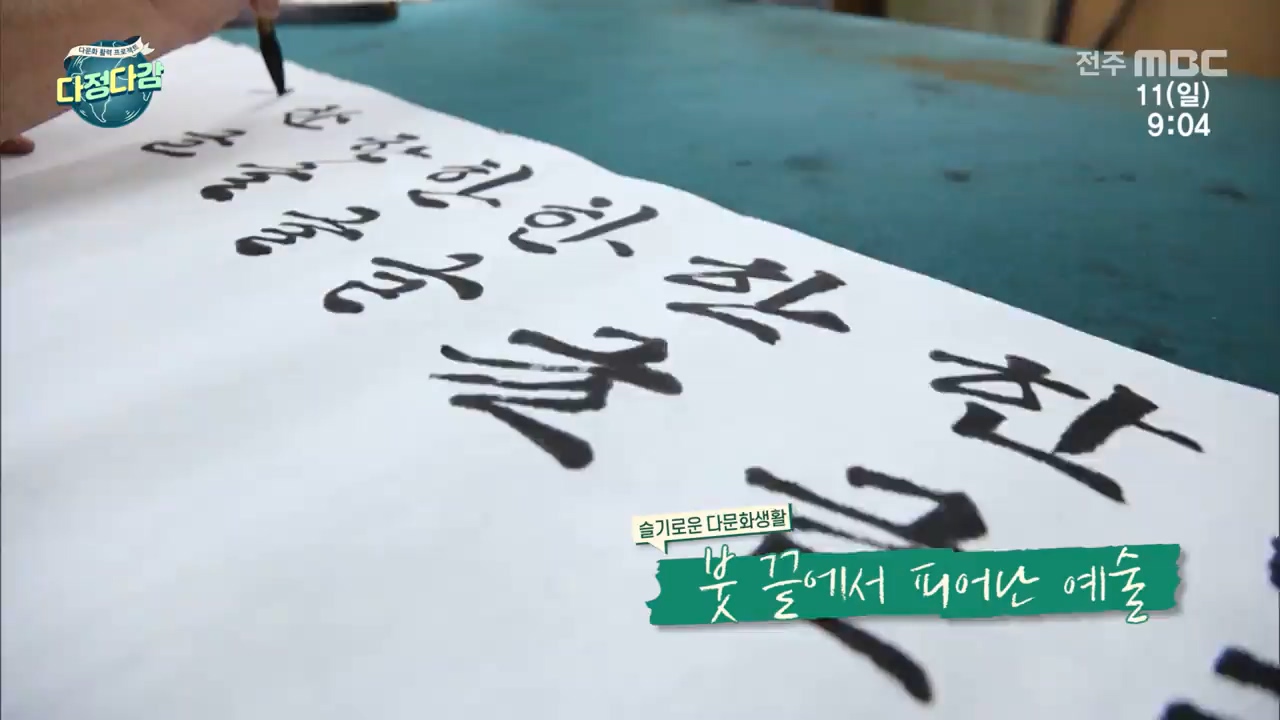 다문화 활력 프로젝트
다정다감
전주 MBC
11(일)
9:04
한 한 한 한 한 한
글 글 글 글 글 글
슬기로운 다문화생활
붓 끝에서 피어난 예술